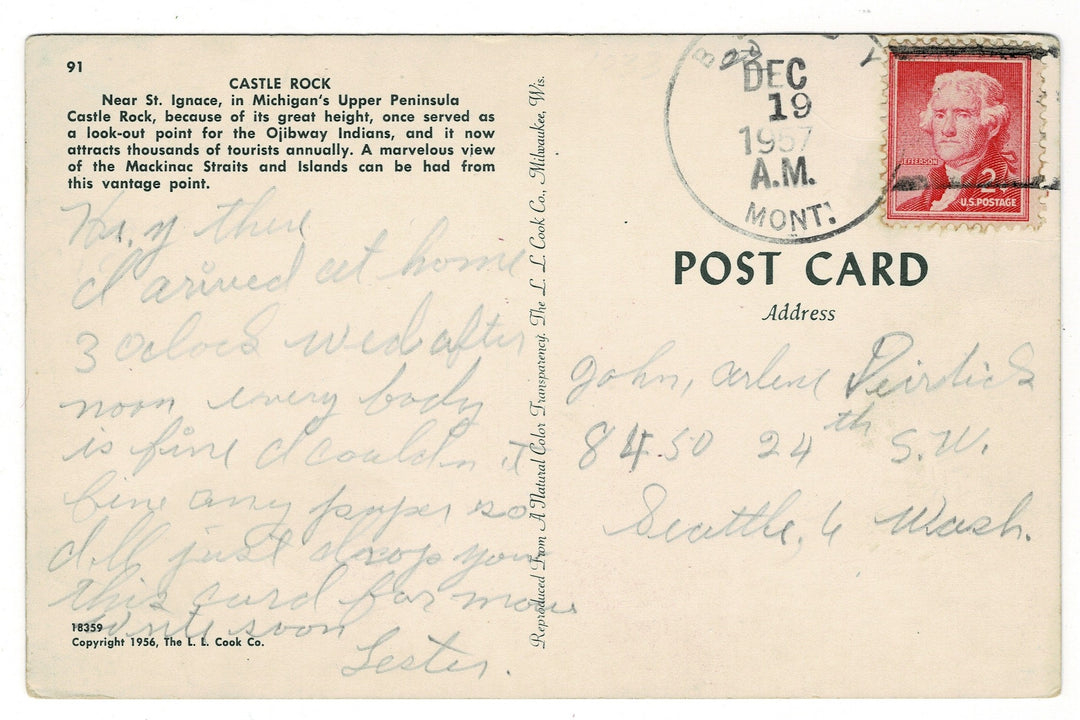 91
CASTLE ROCK
Near St. Ignace, in Michigan's Upper Peninsula
Castle Rock, because of its great height, once served as
a look-out point for the Ojibway Indians, and it now
attracts thousands of tourists annually. A marvelous view
of the Mackinac Straits and Islands can be had from
this vantage point.
there
I arived at home
3 oclock wed after
noon every body
is fine I couldn it
fine any paper so
I'll just drop you
this card for now
write soon
Lester.
18359
Copyright 1956, The L. L. Cook Co.
Reproduced From A Natural Color Transparency. The L. L. Cook Co., Milwaukee, Wis.
DEC
19
1957
A.M.
MONT.
JEFFERSON
2¢
U.S. POSTAGE
POST CARD
Address
John, Arlene
8450 24th S.W.
Seattle, 6 Wash.